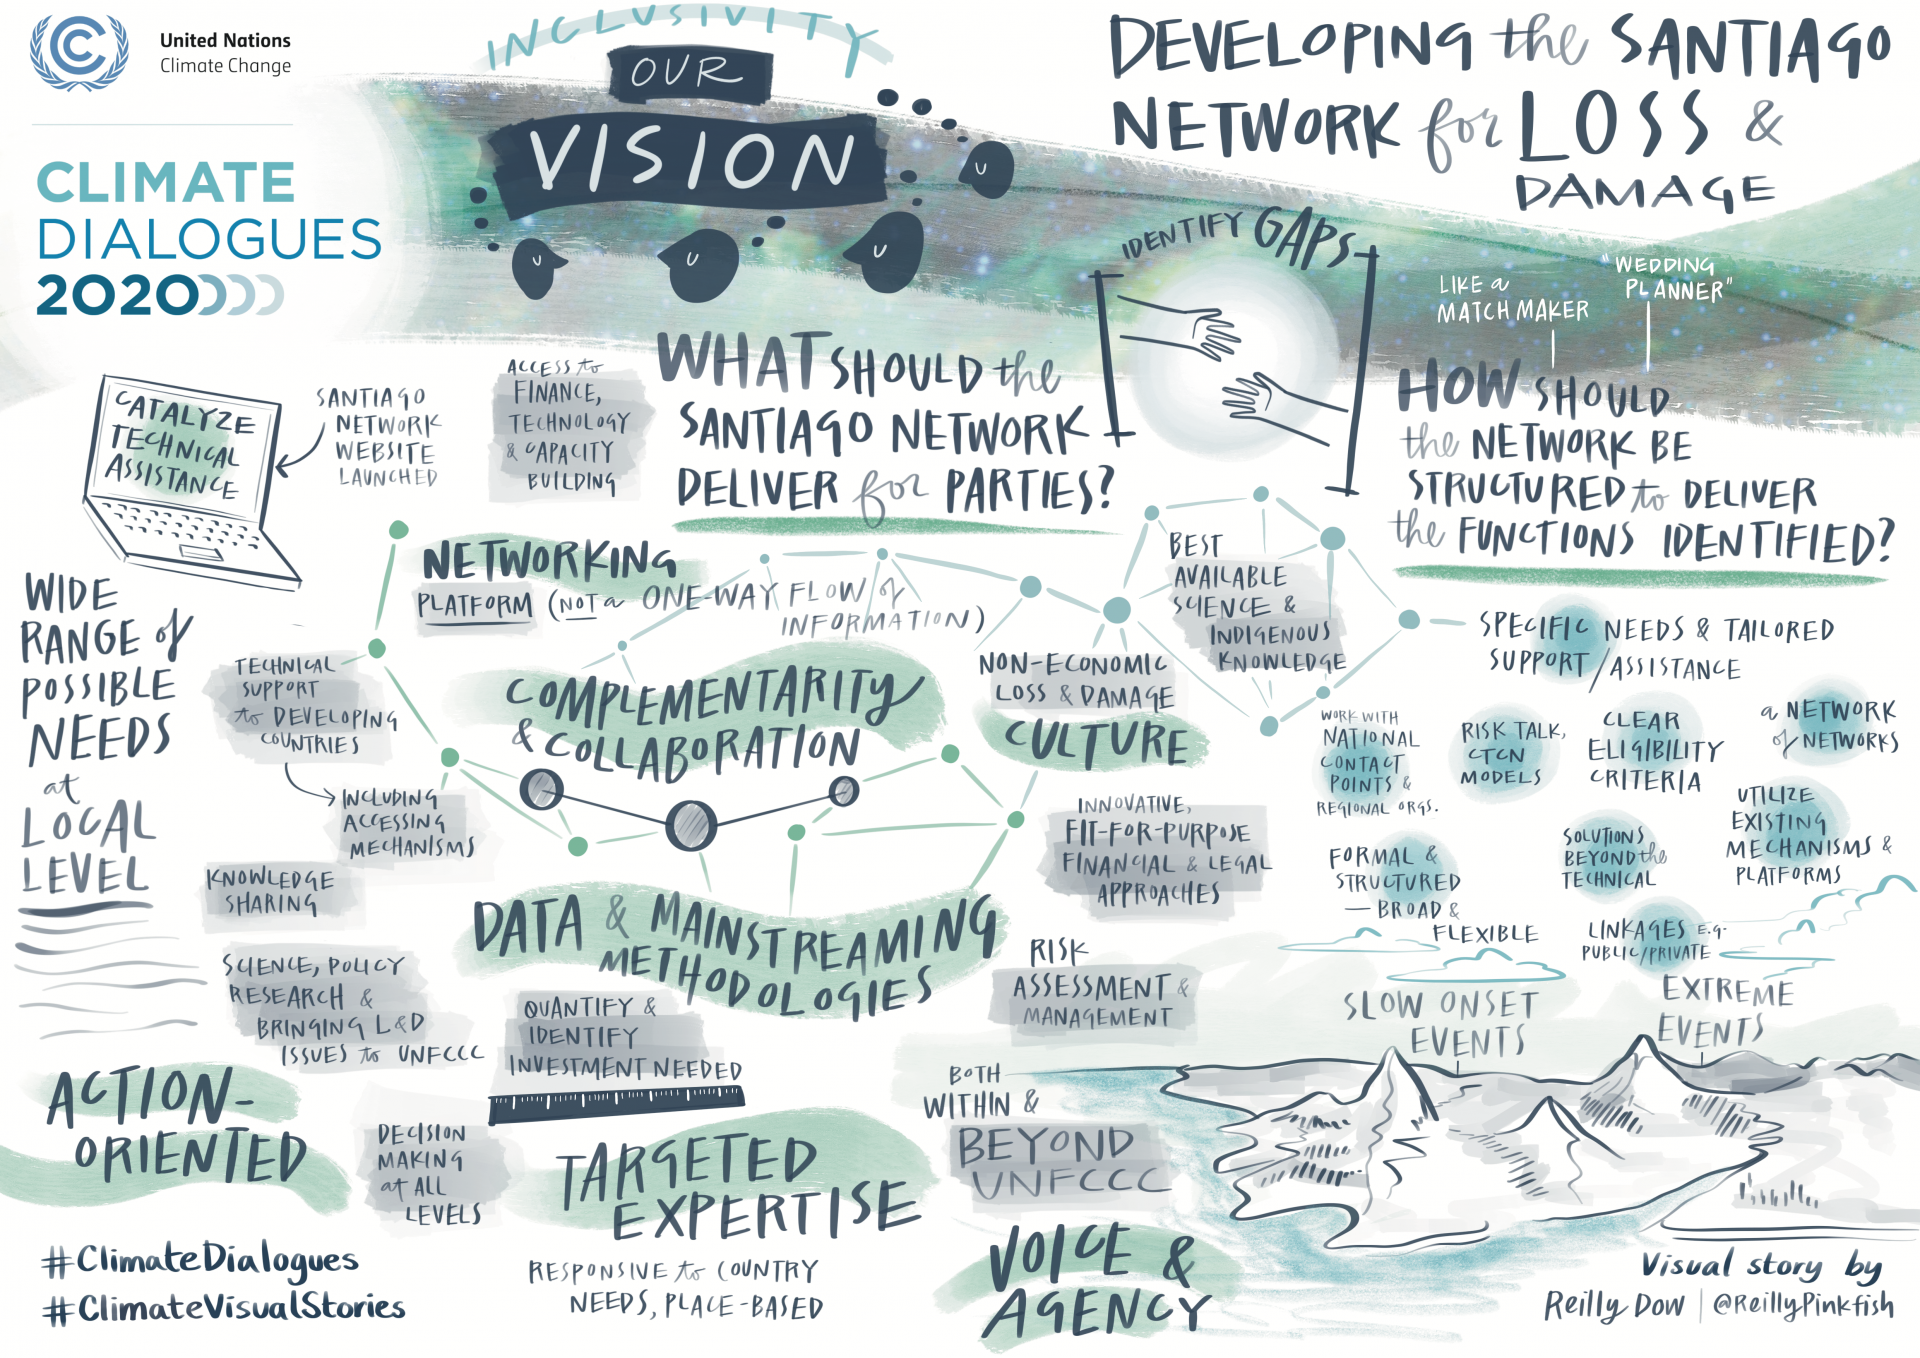 United Nations
Climate Change
CLIMATE
DIALOGUES
2020
INCLUSIVITY
OUR
VISION
DEVELOPING the SANTIAGO
NETWORK for LOSS &
DAMAGE
IDENTIFY GAPS
LIKE a
MATCH MAKER
"WEDDING
PLANNER"
CATALYZE
TECHNICAL
ASSISTANCE
SANTIAGO
NETWORK
WEBSITE
LAUNCHED
ACCESS to
FINANCE,
TECHNOLOGY
& CAPACITY
BUILDING
WHAT SHOULD the
SANTIAGO NETWORK
DELIVER for PARTIES?
HOW SHOULD
the NETWORK BE
STRUCTURED to DELIVER
the FUNCTIONS IDENTIFIED?
WIDE
RANGE of
POSSIBLE
NEEDS
at
LOCAL
LEVEL
NETWORKING
PLATFORM (NOT a ONE-WAY FLOW of
INFORMATION)
TECHNICAL
SUPPORT
to DEVELOPING
COUNTRIES
INCLUDING
ACCESSING
MECHANISMS
KNOWLEDGE
SHARING
COMPLEMENTARITY
& COLLABORATION
NON-ECONOMIC
LOSS & DAMAGE
CULTURE
BEST
AVAILABLE
SCIENCE &
INDIGENOUS
KNOWLEDGE
SPECIFIC NEEDS & TAILORED
SUPPORT/ASSISTANCE
WORK WITH
NATIONAL
CONTACT
POINTS &
REGIONAL ORGS.
RISK TALK,
CTCN
MODELS
CLEAR
ELIGIBILITY
CRITERIA
a NETWORK
of NETWORKS
UTILIZE
EXISTING
MECHANISMS &
PLATFORMS
FORMAL &
STRUCTURED
— BROAD &
FLEXIBLE
SOLUTIONS
BEYOND the
TECHNICAL
LINKAGES E.G.
PUBLIC/PRIVATE
INNOVATIVE,
FIT-FOR-PURPOSE
FINANCIAL & LEGAL
APPROACHES
DATA & MAINSTREAMING
METHODOLOGIES
SCIENCE, POLICY
RESEARCH &
BRINGING L&D
ISSUES to UNFCCC
QUANTIFY &
IDENTIFY
INVESTMENT NEEDED
RISK
ASSESSMENT &
MANAGEMENT
SLOW ONSET
EVENTS
EXTREME
EVENTS
ACTION-
ORIENTED
DECISION
MAKING
at ALL
LEVELS
TARGETED
EXPERTISE
RESPONSIVE to COUNTRY
NEEDS, PLACE-BASED
BOTH
WITHIN &
BEYOND
UNFCCC
VOICE &
AGENCY
#ClimateDialogues
#ClimateVisualStories
Visual story by
Reilly Dow | @ReillyPinkfish